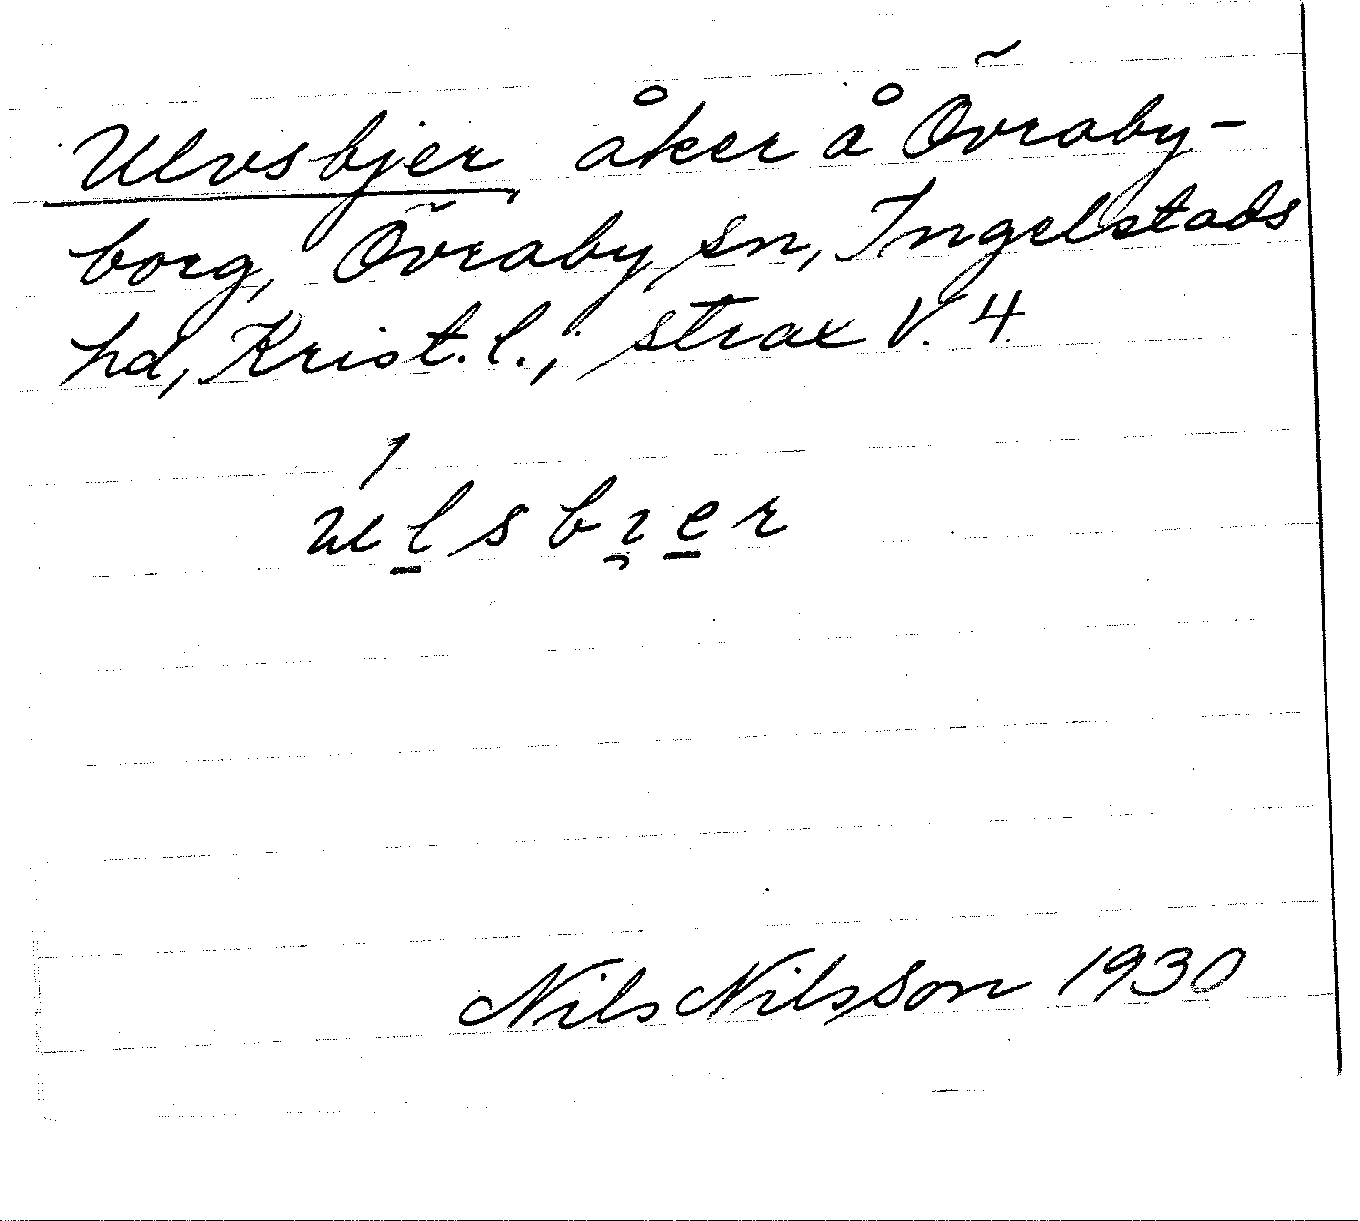 Ulvsbjer, åker å Övraby-
borg, Övraby sn, Ingelstads
hd, Krist. l.; strax V. 4.
Nils Nilsson 1930